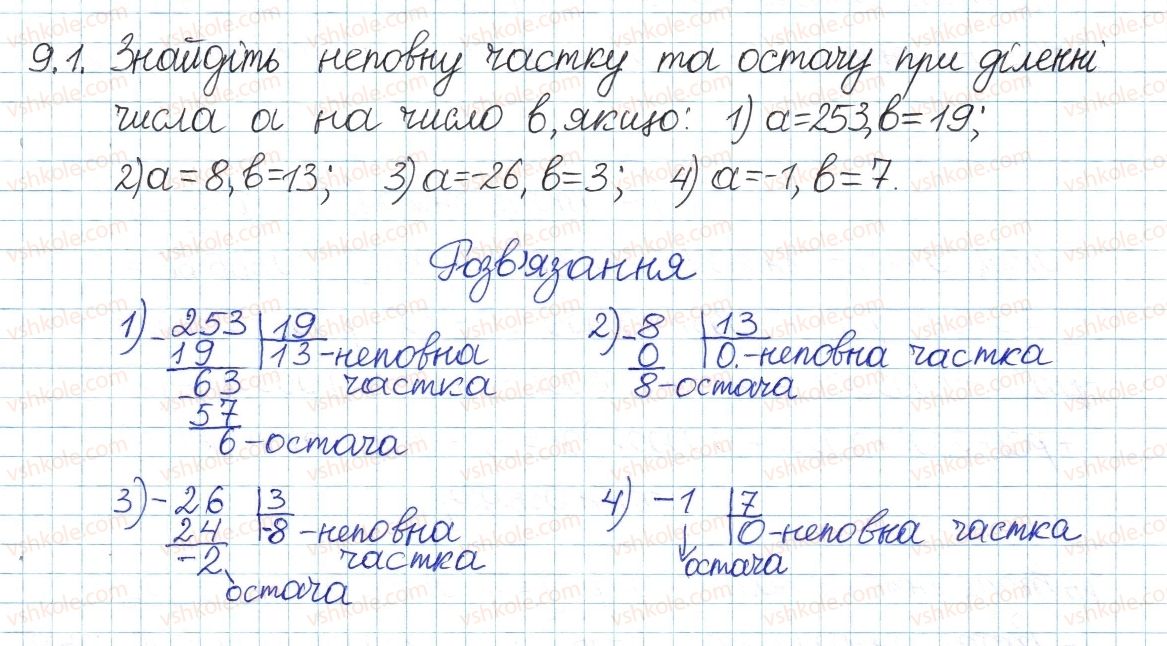 9.1. Знайдіть неповну частку та остачу при діленні
числа a на число b, якщо: 1) a=253, b=19;
2) a=8, b=13; 3) a=-26, b=3; 4) a=-1, b=7.
Розв'язання
1) -253 | 19
19 | 13 - неповна
-63 частка
57
6 - остача
2) -8 | 13
0 | 0. - неповна частка
8 - остача
3) -26 | 3
24 | -8 - неповна
-2 частка
остача
4) -1 | 7
0 - неповна частка
остача
vshkole.com